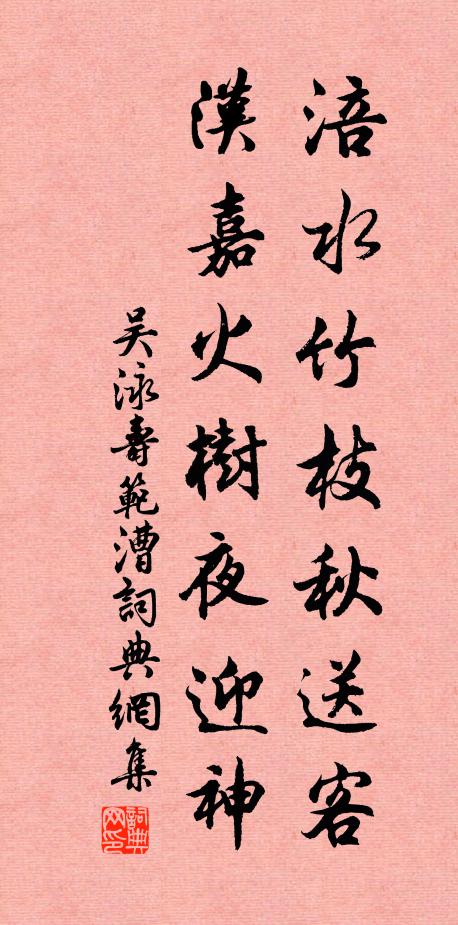 涪水竹枝秋送客
漢嘉火樹夜迎神
吴泳壽範漕詞典網集
詞典网印